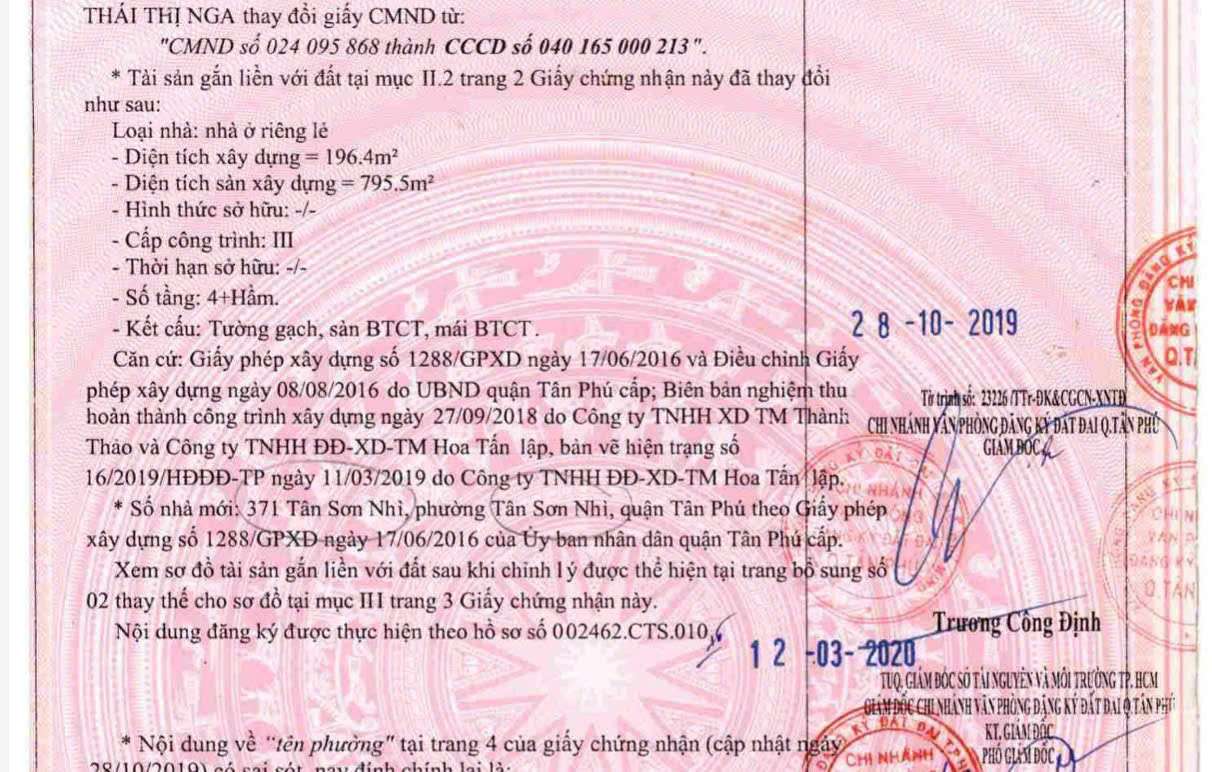 THÁI THỊ NGA thay đổi giấy CMND từ:
"CMND số 024 095 868 thành CCCD số 040 165 000 213".
* Tài sản gắn liền với đất tại mục II.2 trang 2 Giấy chứng nhận này đã thay đổi
như sau:
Loại nhà: nhà ở riêng lẻ
- Diện tích xây dựng = 196.4m²
- Diện tích sàn xây dựng = 795.5m²
- Hình thức sở hữu: -/-
- Cấp công trình: III
- Thời hạn sở hữu: -/-
- Số tầng: 4+Hầm.
- Kết cấu: Tường gạch, sàn BTCT, mái BTCT.
Căn cứ: Giấy phép xây dựng số 1288/GPXD ngày 17/06/2016 và Điều chỉnh Giấy
phép xây dựng ngày 08/08/2016 do UBND quận Tân Phú cấp; Biên bản nghiệm thu
hoàn thành công trình xây dựng ngày 27/09/2018 do Công ty TNHH XD TM Thành
Thảo và Công ty TNHH ĐĐ-XD-TM Hoa Tấn lập, bản vẽ hiện trạng số
16/2019/HĐĐĐ-TP ngày 11/03/2019 do Công ty TNHH ĐĐ-XD-TM Hoa Tấn lập.
* Số nhà mới: 371 Tân Sơn Nhì, phường Tân Sơn Nhì, quận Tân Phú theo Giấy phép
xây dựng số 1288/GPXD ngày 17/06/2016 của Ủy ban nhân dân quận Tân Phú cấp.
Xem sơ đồ tài sản gắn liền với đất sau khi chỉnh lý được thể hiện tại trang bổ sung số
02 thay thế cho sơ đồ tại mục III trang 3 Giấy chứng nhận này.
Nội dung đăng ký được thực hiện theo hồ sơ số 002462.CTS.010
28 -10- 2019
Tờ trình số: 23226 /TTr-ĐK&CGCN-XNTĐ
CHI NHÁNH VĂN PHÒNG ĐĂNG KÝ ĐẤT ĐAI Q.TÂN PHÚ
GIÁM ĐỐC
Trương Công Định
12 -03- 2020
TUQ. GIÁM ĐỐC SỞ TÀI NGUYÊN VÀ MÔI TRƯỜNG TP. HCM
GIÁM ĐỐC CHI NHÁNH VĂN PHÒNG ĐĂNG KÝ ĐẤT ĐAI Q.TÂN PHÚ
KT. GIÁM ĐỐC
PHÓ GIÁM ĐỐC
* Nội dung về "tên phường" tại trang 4 của giấy chứng nhận (cập nhật ngày
28/10/2019) có sai sót, nay đính chính lại là:
CHI NHÁNH